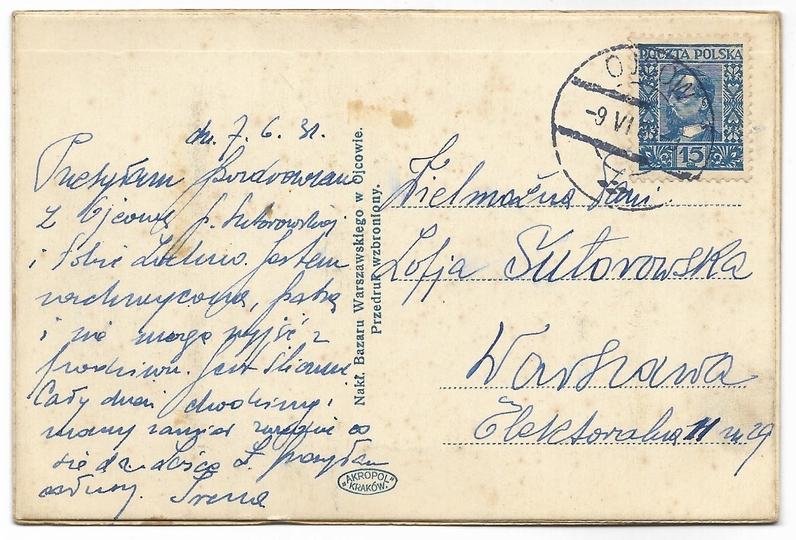 dn. 7. 6. 31.
Przesyłam pozdrowienia
z Ojcowa p. Sutorowskiej
i Tobie Zochno. Jestem
zachwycona, patrzę
i nie mogę wyjść z
podziwu. Jest ślicznie
Cały dzień chodzimy i
mamy zamiar
się da.
Irena
Nakł. Bazaru Warszawskiego w Ojcowie.
Przedruk wzbroniony.
"AKROPOL"
KRAKÓW.
POCZTA POLSKA
15
OJCÓW
-9 VI
Wielmożna Pani
Zofja Sutorowska
Warszawa
Elektoralna 11 m 29